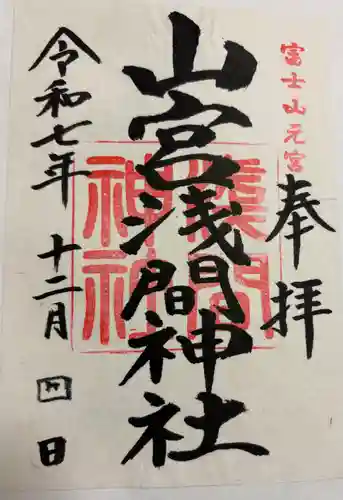 富士山元宮
奉拝
山宮浅間神社
令和七年十二月四日
浅間神社